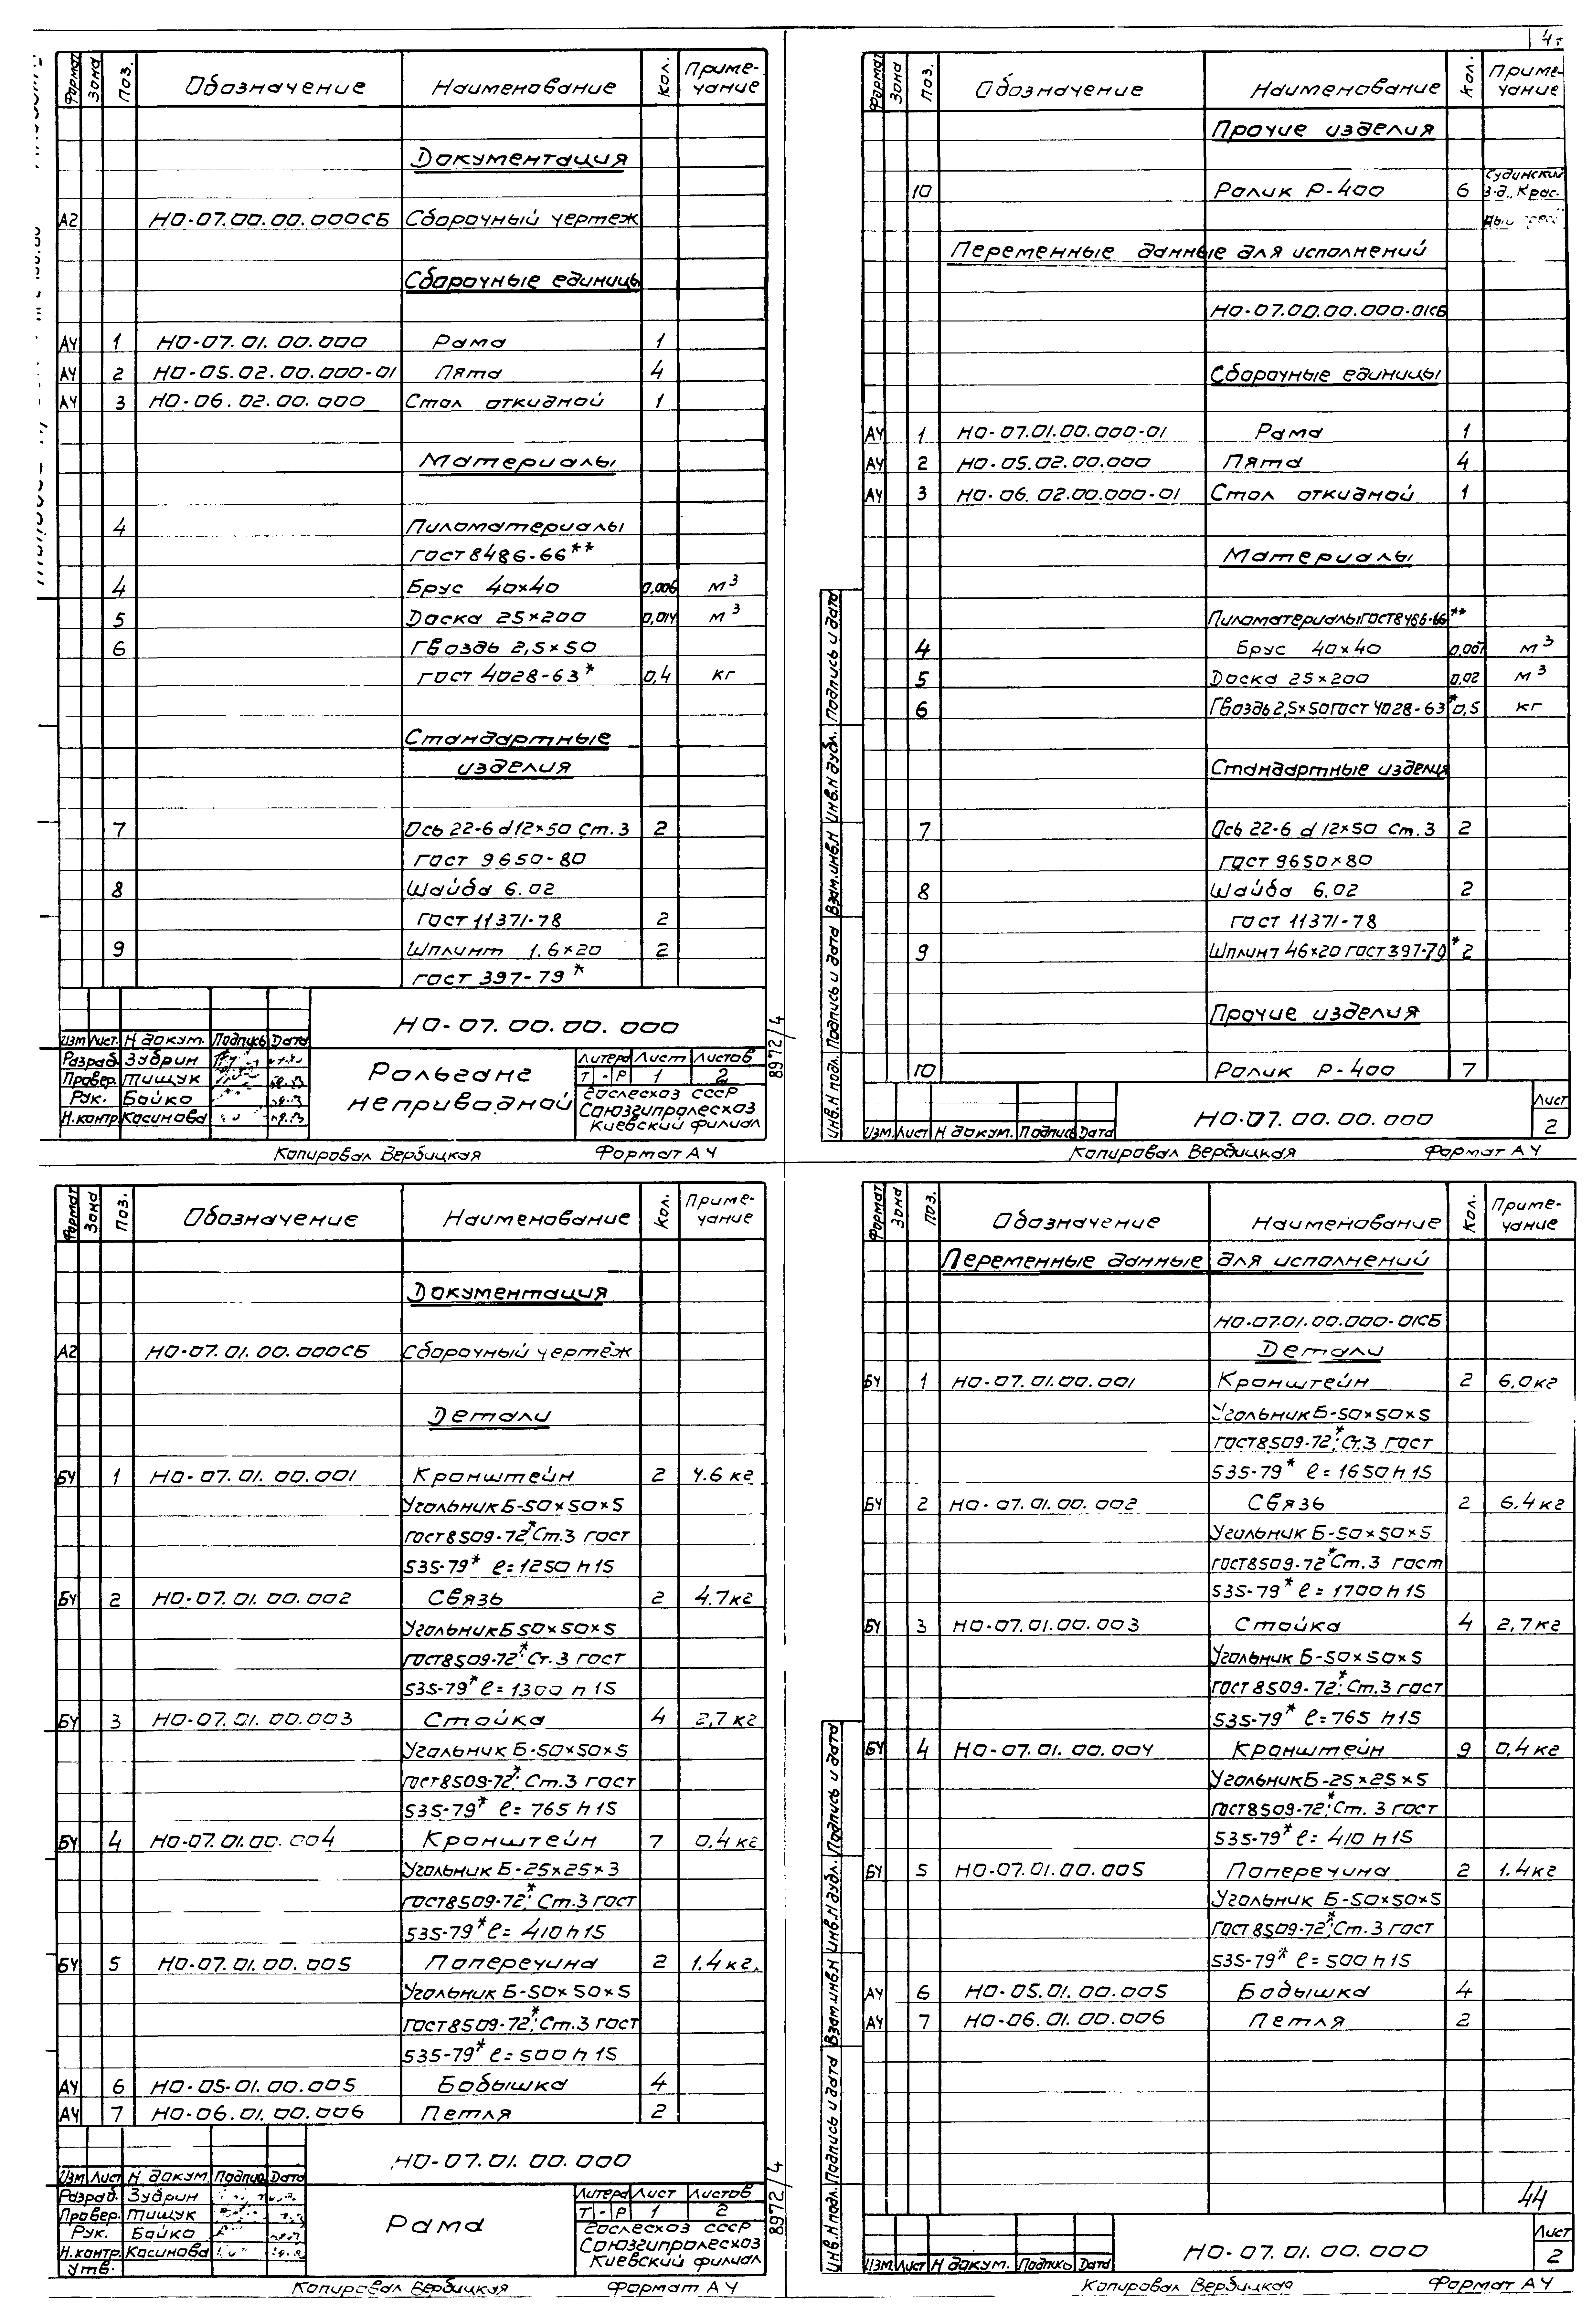 4т
Формат Зона Поз. Обозначение Наименование Кол. Приме-
чание
Документация
А2 НО-07.00.00.000СБ Сборочный чертеж
Сборочные единицы
АЧ 1 НО-07.01.00.000 Рама 1
АЧ 2 НО-05.02.00.000-01 Пята 4
АЧ 3 НО-06.02.00.000 Стол откидной 1
Материалы
4 Пиломатериалы
ГОСТ 8486-66**
4 Брус 40×40 0,006 м³
5 Доска 25×200 0,014 м³
6 Гвоздь 2,5×50
ГОСТ 4028-63* 0,4 кг
Стандартные
изделия
7 Ось 22-6 d12×50 Ст.3 2
ГОСТ 9650-80
8 Шайба 6.02
ГОСТ 11371-78 2
9 Шплинт 1.6×20 2
ГОСТ 397-79*
НО-07.00.00.000
Изм Лист. N докум. Подпись Дата
Разраб. Зубрин
Провер. Тищук
Рук. Бойко
Н.контр. Касинова
Рольганг
неприводной
Литера Лист Листов
Т - Р 1 2
Гослесхоз СССР
Союзгипролесхоз
Киевский филиал
8972/4
Копировал Вербицкая Формат АЧ
Формат Зона Поз. Обозначение Наименование Кол. Приме-
чание
Прочие изделия
10 Ролик Р-400 6 Судинский
з-д., Крас.
Переменные данные для исполнений
НО-07.00.00.000-01СБ
Сборочные единицы
АЧ 1 НО-07.01.00.000-01 Рама 1
АЧ 2 НО-05.02.00.000 Пята 4
АЧ 3 НО-06.02.00.000-01 Стол откидной 1
Материалы
Пиломатериалы ГОСТ 8486-66**
4 Брус 40×40 м³
5 Доска 25×200 0,02 м³
6 Гвоздь 2,5×50 ГОСТ 4028-63* 0,5 кг
Стандартные изделия
7 Ось 22-6 d 12×50 Ст.3 2
ГОСТ 9650×80
8 Шайба 6.02 2
ГОСТ 11371-78
9 Шплинт 46×20 ГОСТ 397-79* 2
Прочие изделия
10 Ролик Р-400 7
Инв.N подл. Подпись и дата Взам.инв.N Инв.N дубл. Подпись и дата
Изм. Лист N докум. Подпись Дата
НО-07.00.00.000
Лист
2
Копировал Вербицкая Формат АЧ
Формат Зона Поз. Обозначение Наименование Кол. Приме-
чание
Документация
А2 НО-07.01.00.000СБ Сборочный чертёж
Детали
БЧ 1 НО-07.01.00.001 Кронштейн 2 4.6 кг
Угольник Б-50×50×5
ГОСТ 8509-72*; Ст.3 ГОСТ
535-79* ℓ=1250 h15
БЧ 2 НО-07.01.00.002 Связь 2 4.7кг
Угольник Б 50×50×5
ГОСТ 8509-72*; Ст.3 ГОСТ
535-79* ℓ=1300 h15
БЧ 3 НО-07.01.00.003 Стойка 4 2,7 кг
Угольник Б-50×50×5
ГОСТ 8509-72*; Ст.3 ГОСТ
535-79* ℓ= 765 h15
БЧ 4 НО-07.01.00.004 Кронштейн 7 0,4 кг
Угольник Б-25×25×3
ГОСТ 8509-72*; Ст.3 ГОСТ
535-79* ℓ= 410 h15
БЧ 5 НО-07.01.00.005 Поперечина 2 1.4 кг.
Угольник Б-50×50×5
ГОСТ 8509-72*; Ст.3 ГОСТ
535-79* ℓ= 500 h15
АЧ 6 НО-05-01.00.005 Бобышка 4
АЧ 7 НО-06.01.00.006 Петля 2
НО-07.01.00.000
Изм Лист N докум. Подпис Дата
Разраб. Зубрин
Провер. Тищук
Рук. Бойко
Н.контр. Касинова
Утв.
Рама
Литера Лист Листов
Т - Р 1 2
Гослесхоз СССР
Союзгипролесхоз
Киевский филиал
8972/4
Копировал Вербицкая Формат АЧ
Формат Зона Поз. Обозначение Наименование Кол. Приме-
чание
Переменные данные для исполнений
НО-07.01.00.000-01СБ
Детали
БЧ 1 НО-07.01.00.001 Кронштейн 2 6,0кг
Угольник Б-50×50×5
ГОСТ 8509-72*; Ст.3 ГОСТ
535-79* ℓ=1650 h15
БЧ 2 НО-07.01.00.002 Связь 2 6.4кг
Угольник Б-50×50×5
ГОСТ 8509-72* Ст.3 ГОСТ
535-79* ℓ=1700 h15
БЧ 3 НО-07.01.00.003 Стойка 4 2,7кг
Угольник Б-50×50×5
ГОСТ 8509-72*; Ст.3 ГОСТ
535-79* ℓ=765 h15
БЧ 4 НО-07.01.00.004 Кронштейн 9 0,4кг
Угольник Б-25×25×5
ГОСТ 8509-72*; Ст.3 ГОСТ
535-79* ℓ= 410 h15
БЧ 5 НО-07.01.00.005 Поперечина 2 1.4кг
Угольник Б-50×50×5
ГОСТ 8509-72*; Ст.3 ГОСТ
535-79* ℓ=500 h15
АЧ 6 НО-05.01.00.005 Бобышка 4
АЧ 7 НО-06.01.00.006 Петля 2
44
Инв.N подл. Подпись и дата Взам.инв.N Инв.N дубл. Подпись и дата
Изм. Лист N докум. Подпись Дата
НО-07.01.00.000
Лист
2
Копировал Вербицкая Формат АЧ